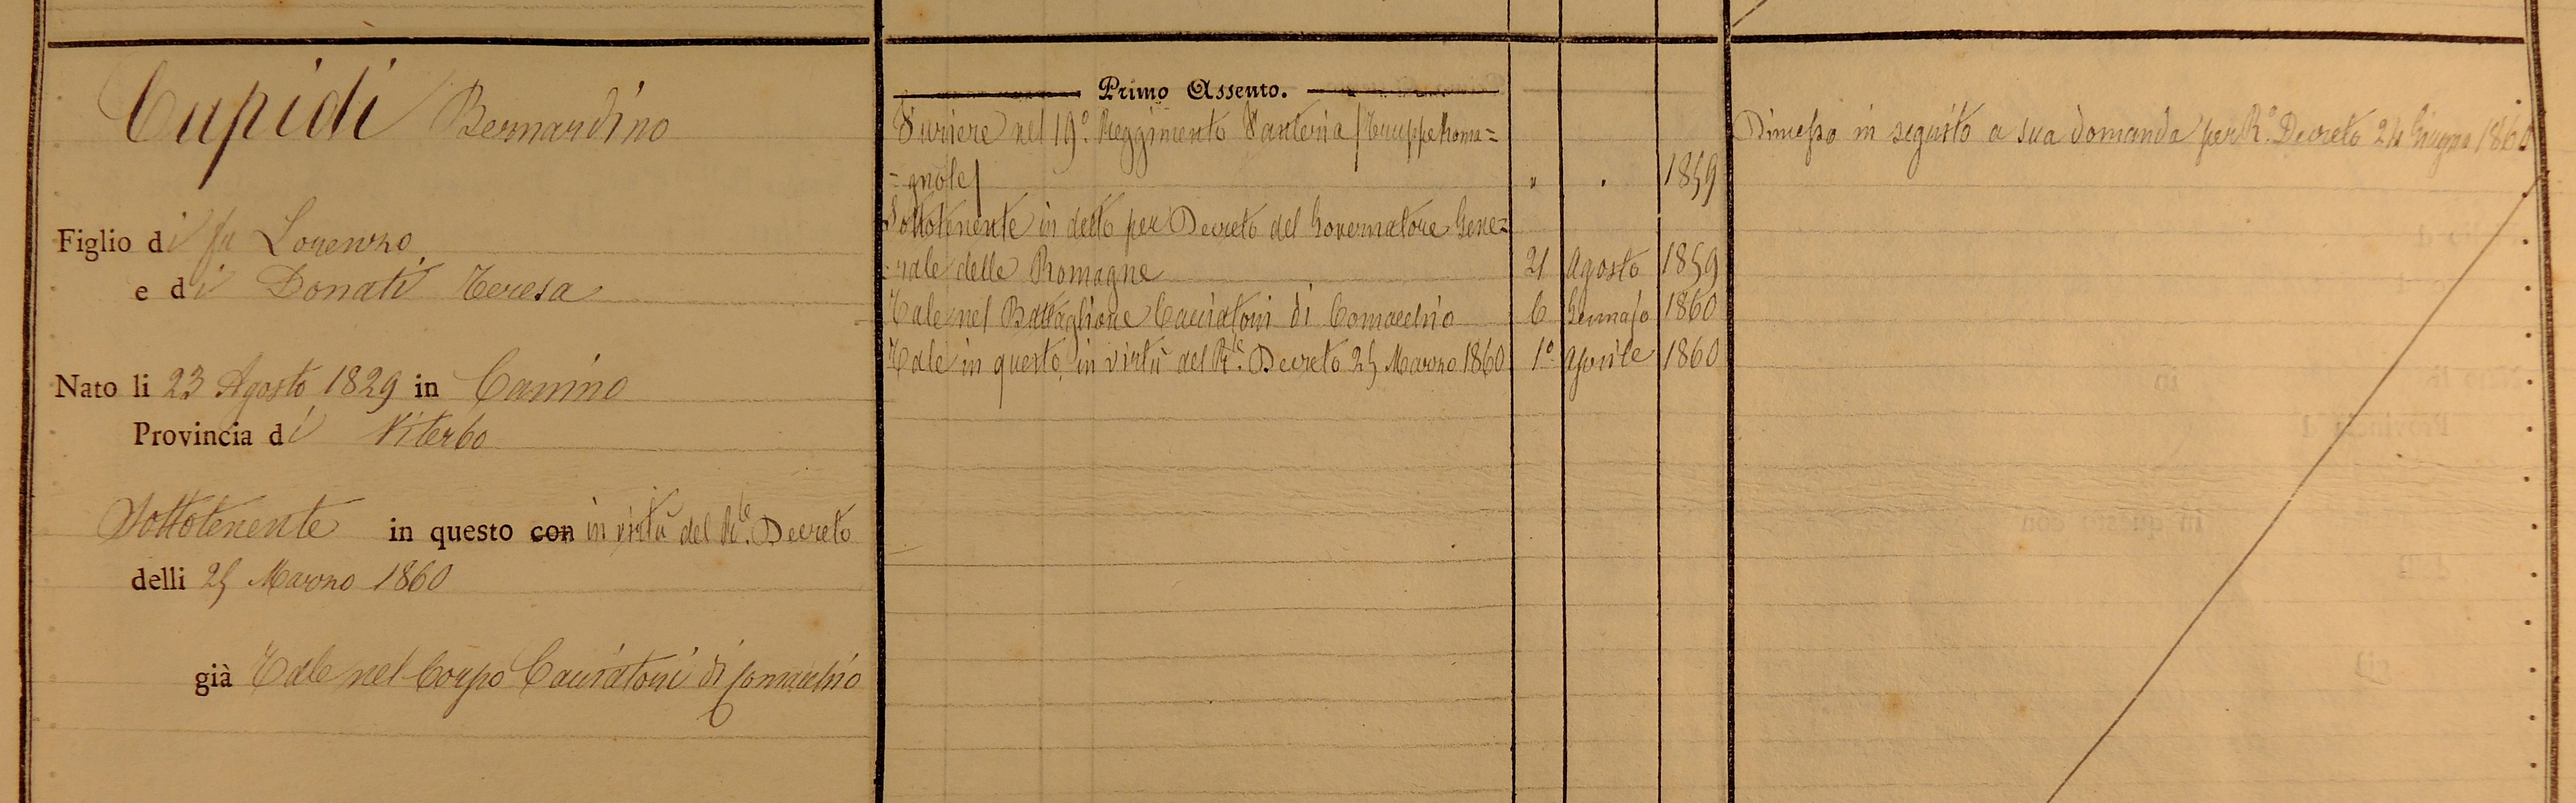 Cupidi Bernardino
Figlio di fu Lorenzo
e di Donati Teresa
Nato li 23 Agosto 1829 in Canino
Provincia di Viterbo
Sottotenente in questo con in virtù del Rle. Decreto
delli 25 Marzo 1860
già Tale nel Corpo Cacciatori di Comacchio
Primo Assento.
Furiere nel 19º Reggimento Fanteria (Truppe Roma=
=gnole) " . 1859
Sottotenente in detto per Decreto del Governatore Gene=
=rale delle Romagne 21 Agosto 1859
Tale nel Battaglione Cacciatori di Comacchio 6 Gennajo 1860
Tale in questo in virtù del Rle. Decreto 25 Marzo 1860 1º Aprile 1860
Dimesso in seguito a sua domanda per Rº. Decreto 24 Giugno 1860